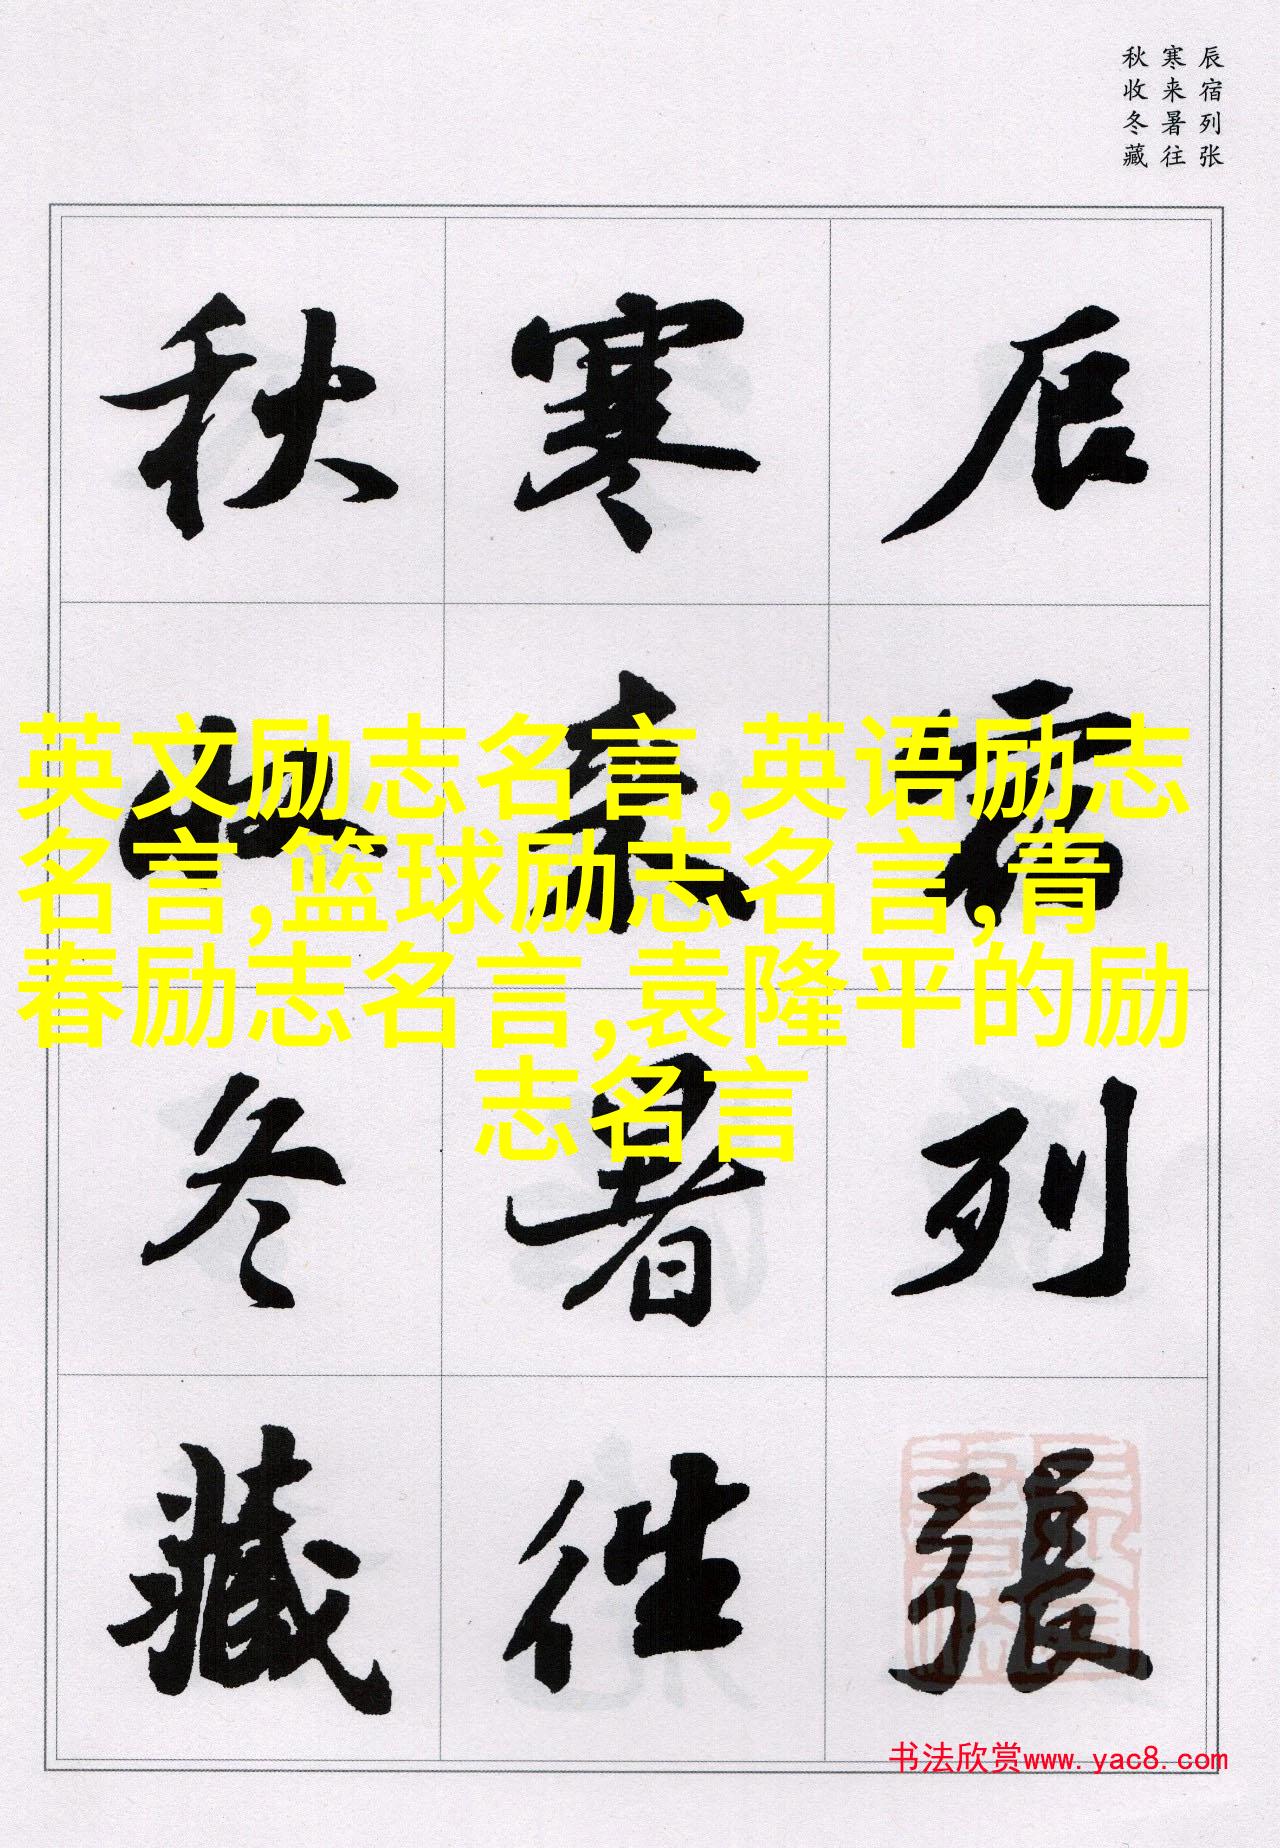 辰宿列张
寒来暑往
秋收冬藏
辰宿列張
寒来暑往
秋收冬藏
英文励志名言,英语励志
名言,篮球励志名言,青
春励志名言,袁隆平的励
志名言
书法欣赏www.yac8.com